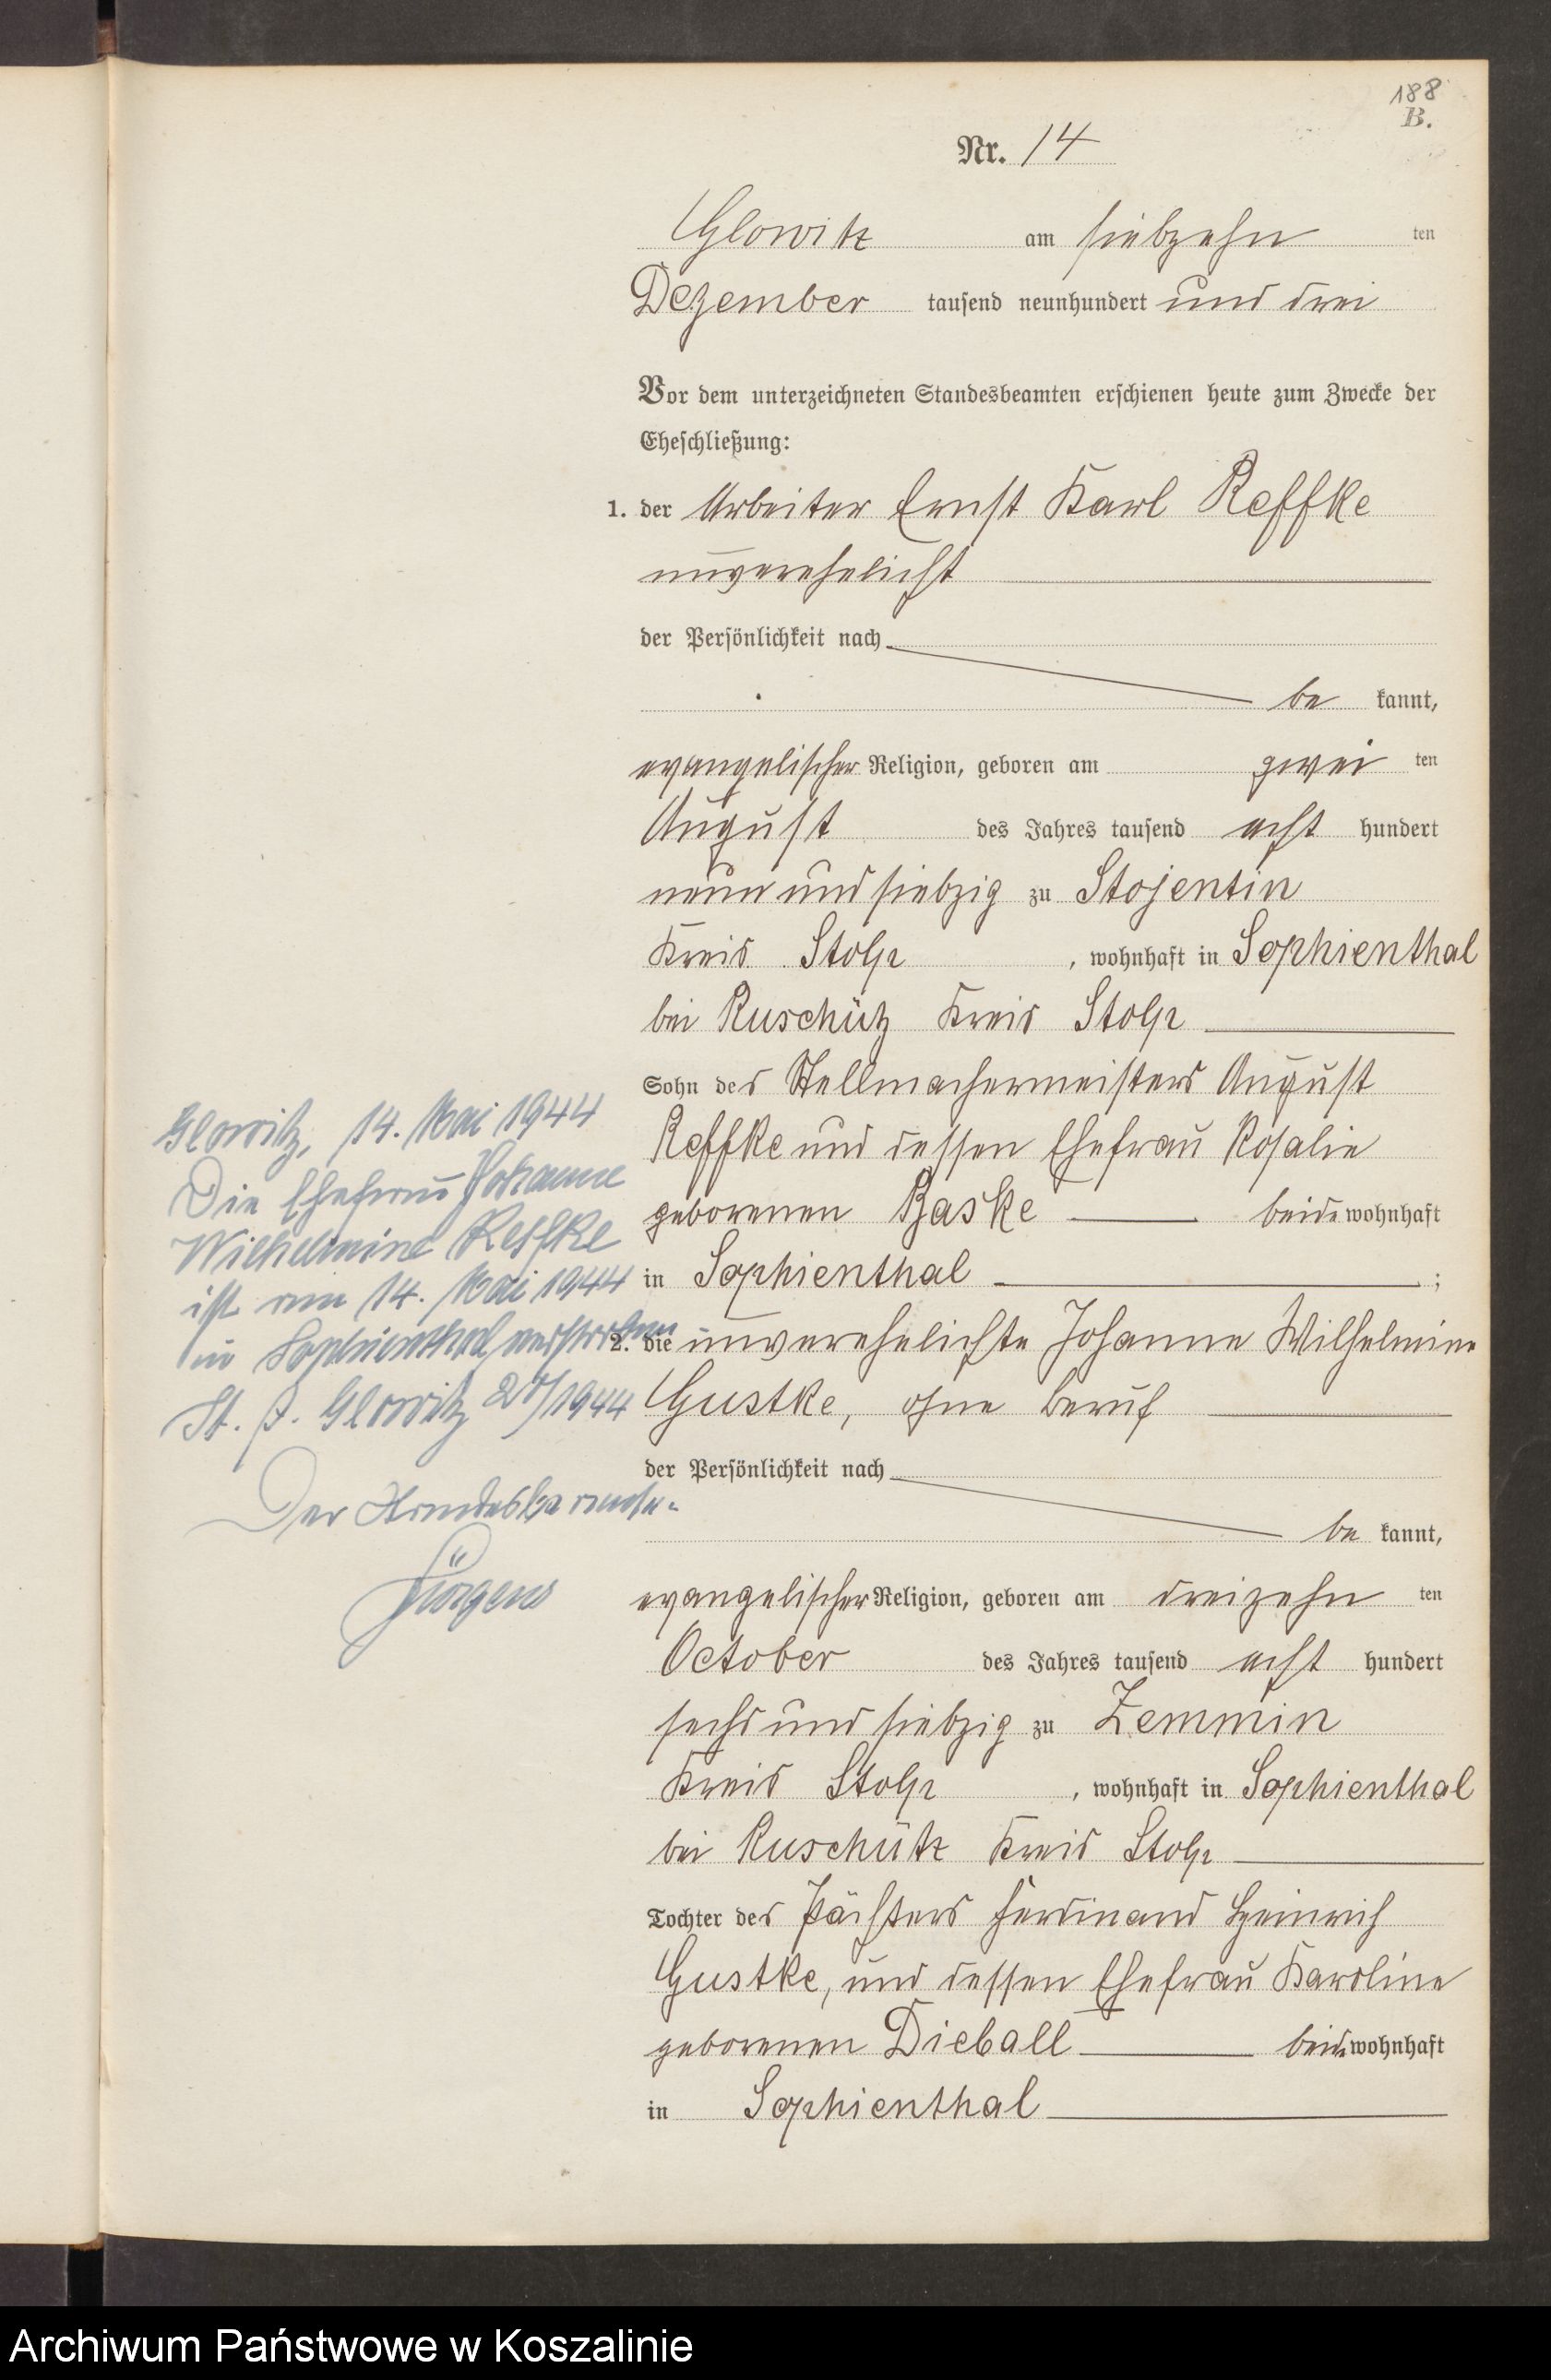 188
B.
Nr. 14
Glowitz am siebzehn ten
Dezember tausend neunhundert und drei
Vor dem unterzeichneten Standesbeamten erschienen heute zum Zwecke der
Eheschließung:
1. der Arbeiter Ernst Karl Reffke
unverehelicht
der Persönlichkeit nach
be kannt,
evangelischer Religion, geboren am zwei ten
August des Jahres tausend acht hundert
neun und siebzig zu Stojentin
Kreis Stolp, wohnhaft in Sophienthal
bei Ruschütz Kreis Stolp
Sohn des Stellmachermeisters August
Reffke und dessen Ehefrau Rosalie
geborenen Baske beide wohnhaft
in Sophienthal ;
2. die unverehelichte Johanne Wilhelmine
Gustke, ohne Beruf
der Persönlichkeit nach
be kannt,
evangelischer Religion, geboren am dreizehn ten
October des Jahres tausend acht hundert
sechs und siebzig zu Zemmin
Kreis Stolp, wohnhaft in Sophienthal
bei Ruschütz Kreis Stolp
Tochter des Pächters Ferdinand Heinrich
Gustke, und dessen Ehefrau Karoline
geborenen Dieball beide wohnhaft
in Sophienthal
Glowitz, 14. Mai 1944
Die Ehefrau Johanne
Wilhelmine Reffke
ist am 14. Mai 1944
in Sophienthal verstorben
St. A. Glowitz /1944
Der Standesbeamte
Jürgens
Archiwum Państwowe w Koszalinie